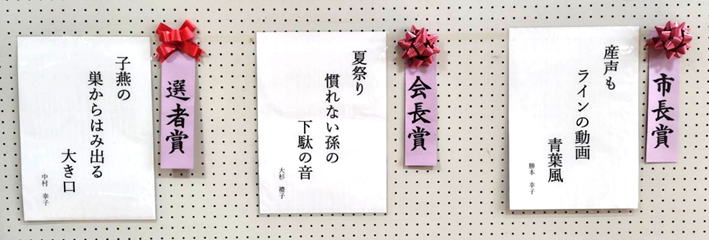 市長賞
産声も
ラインの動画
青葉風
勝本 幸子
会長賞
夏祭り
慣れない孫の
下駄の音
大杉 禮子
選者賞
子燕の
巣からはみ出る
大き口
中村 幸子